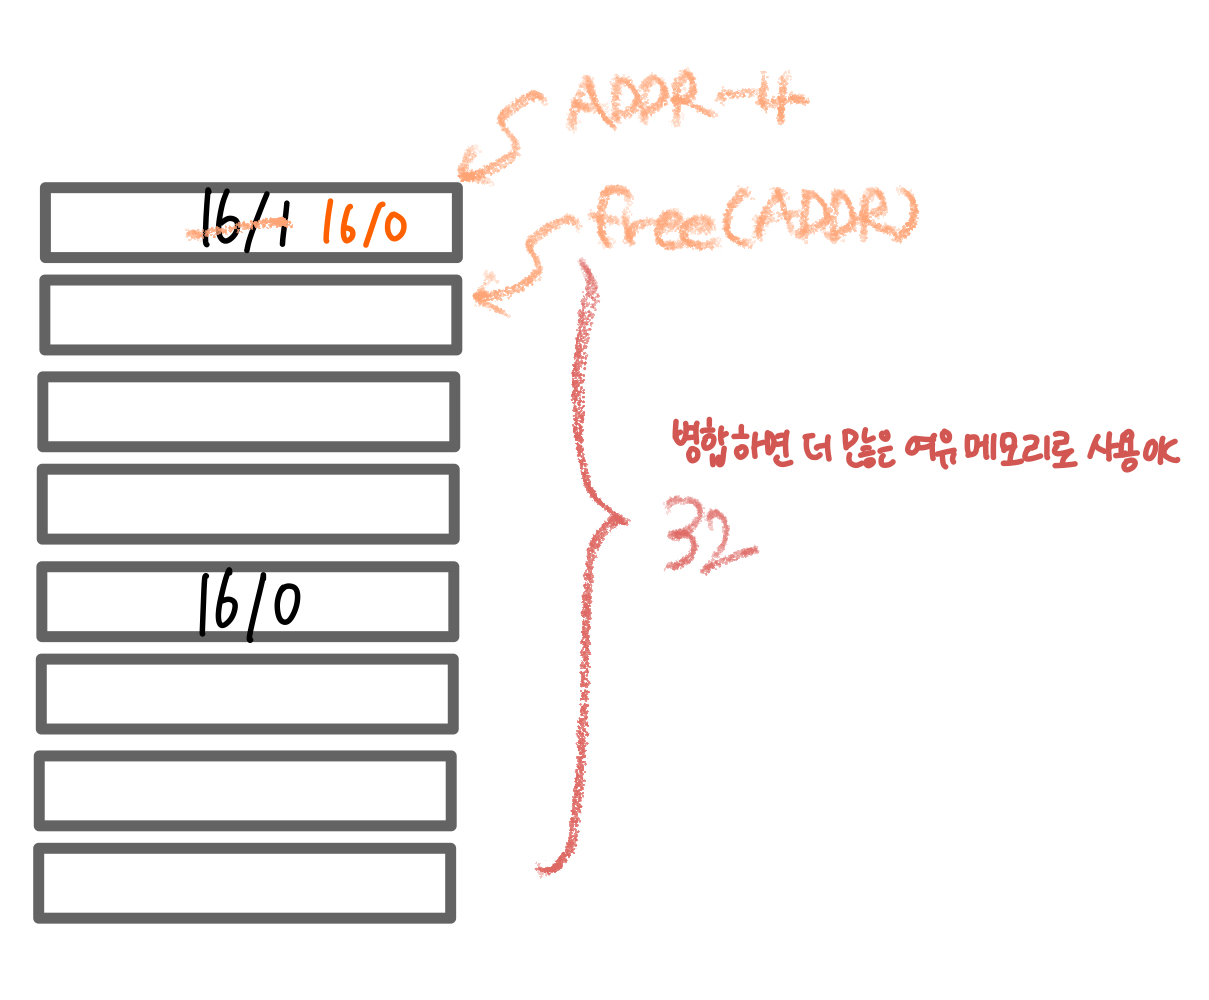 ADDR-4
16/1 16/0
free(ADDR)
병합하면 더 많은 여유 메모리로 사용OK
32
16/0